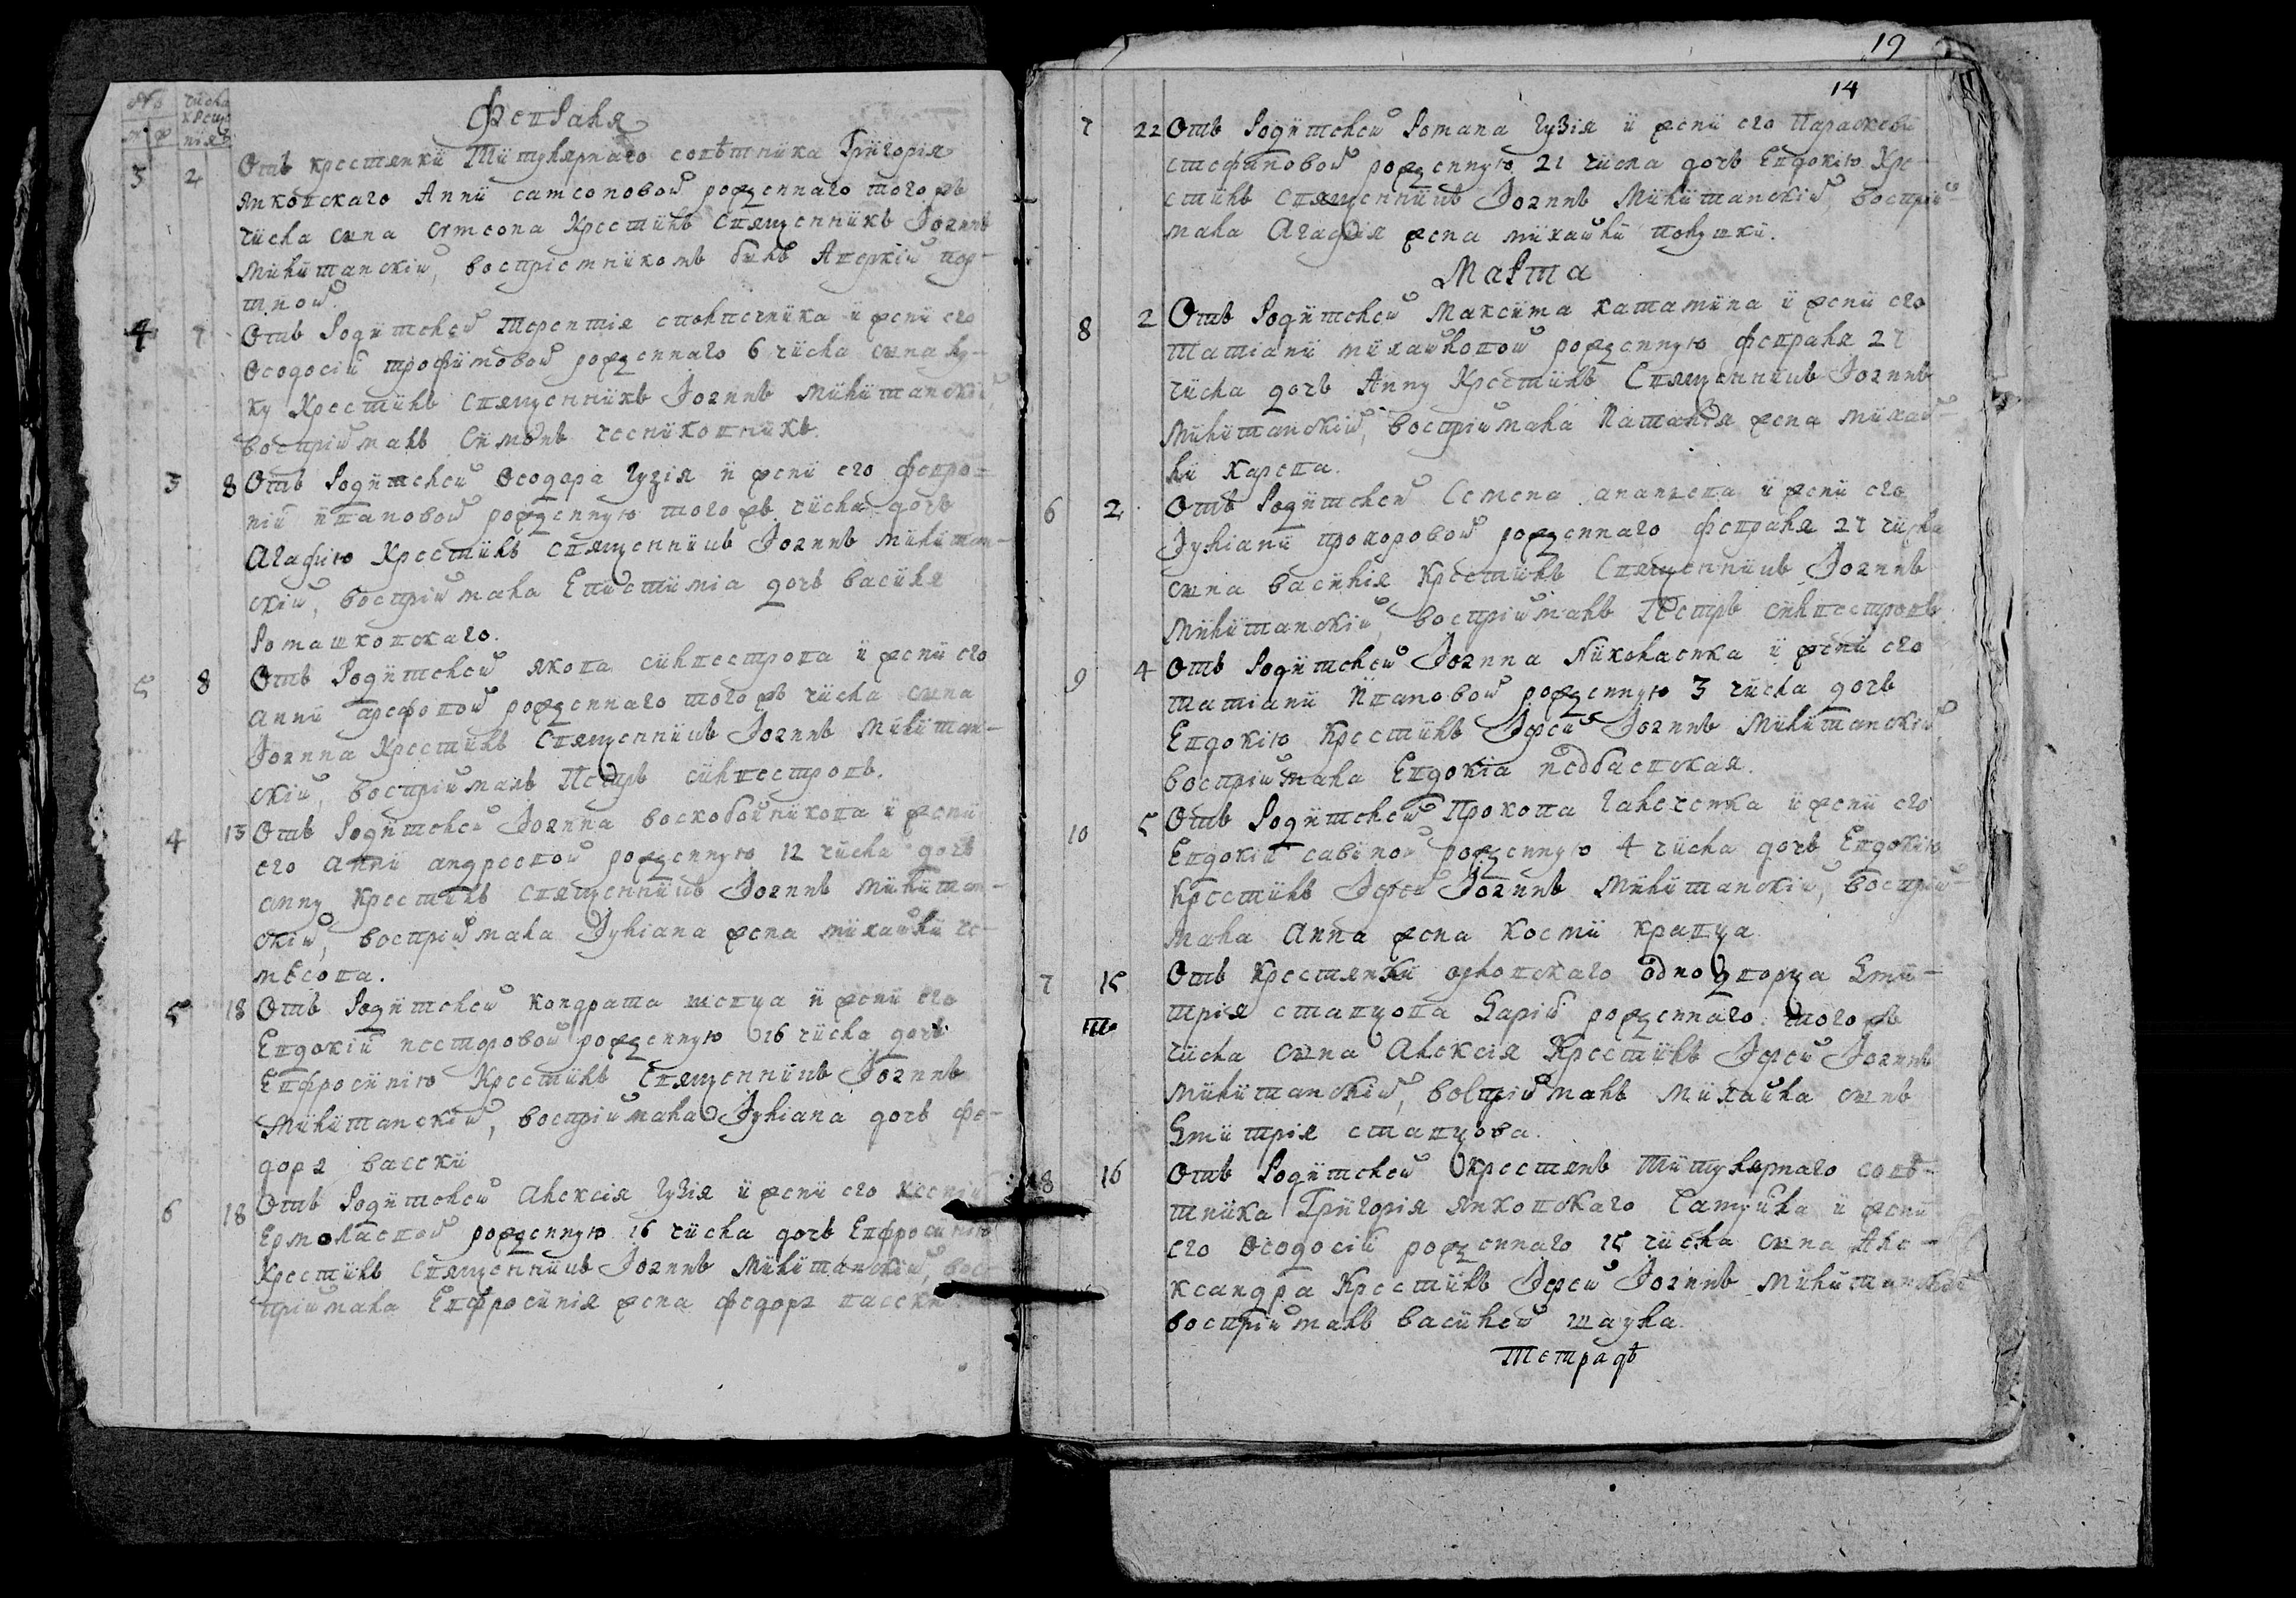 №
числа
крещ
м. ж.
нія
Февраля
3 2 Отъ крестянки Титулярнаго совѣтника Григорія
янковскаго Анни самсоновой рожденнаго того жъ
числа сына Симеона Крестилъ Священникъ Іоаннъ
Милитанскій, воспріемникомъ билъ Аверкій пор-
тной
4 7 Отъ Родителей Терентія
и жени его
Ѳеодосіи трофимовой рожденнаго 6 числа сына лу-
ку Крестилъ Священникъ Іоаннъ Милитанскій,
воспріималъ Симонъ чесниковникъ.
3 8 Отъ Родителей Ѳеодора Гузія и жени его февро-
ніи ивановой рожденную того жъ числа дочь
Агафію Крестилъ Священникъ Іоаннъ Милитан-
скій, воспріимала Епистимія дочь василя
Ромашковскаго.
5 8 Отъ Родителей якова силвестрова и жени его
анни арефовой рожденнаго того жъ числа сына
Іоанна Крестилъ Священникъ Іоаннъ Милитан-
скій, воспріималъ Петръ силвестровъ.
4 13 Отъ Родителей Іоанна воскобойникова и жени
его анни андреевой рожденную 12 числа дочь
анну Крестилъ Священникъ Іоаннъ Милитан-
скій, воспріимала Іуліана жена михайли
5 18 Отъ Родителей кондрата шевца и жени его
Евдокіи несторовой рожденную 16 числа дочь
Евфросинію Крестилъ Священникъ Іоаннъ
Милитанскій, воспріимала Іуліана дочь фе-
дора васски
6 18 Отъ Родителей Алексія Гузія и жени его Ксеніи
Ермолаевой рожденную 16 числа дочь Евфросинію
Крестилъ Священникъ Іоаннъ Милитанскій, вос-
пріимала Евфросинія жена федора васски
19
14
7 22 Отъ Родителей Романа Гузія и жени его Параскеви
стефановой рожденную 21 числа дочь Евдокію Кре-
стилъ Священникъ Іоаннъ Милитанскій, воспріи-
мала Агафія жена михайли
Марта
8 2 Отъ Родителей Максима каташина и жени его
Татіани михайловой рожденную февраля 27
числа дочь Анну Крестилъ Священникъ Іоаннъ
Милитанскій, воспріимала Наталія жена михай-
ли Карева.
6 2 Отъ Родителей Семена ананьева и жени его
Іуліани прохоровой рожденнаго февраля 27 числа
сына василія Крестилъ Священникъ Іоаннъ
Милитанскій, воспріималъ Петръ силвестровъ
9 4 Отъ Родителей Іоанна Николаенка и жени его
татіани Ивановой рожденную 3 числа дочь
Евдокію Крестилъ Іерей Іоаннъ Милитанскій,
воспріимала Евдокія недбаевская.
10 5 Отъ Родителей Прокопа Галченка и жени его
Евдокіи савиной рожденную 4 числа дочь Евдокію
Крестилъ Іерей Іоаннъ Милитанскій, воспріи-
мала Анна жена Косми кравца
7 15 Отъ Крестянки орловскаго однодворца Дми-
трія станцова Даріи рожденнаго того жъ
числа сына Алексія Крестилъ Іерей Іоаннъ
Милитанскій, воспріималъ Михайла сынъ
Дмитрія станцова.
8 16 Отъ Родителей крестянъ Титулярнаго совѣ-
тника Григорія янковскаго Самуйла и жени
его Ѳеодосіи рожденнаго 15 числа сына Але-
ксандра Крестилъ Іерей Іоаннъ Милитанскій
воспріималъ василей шаула.
Тетрадь